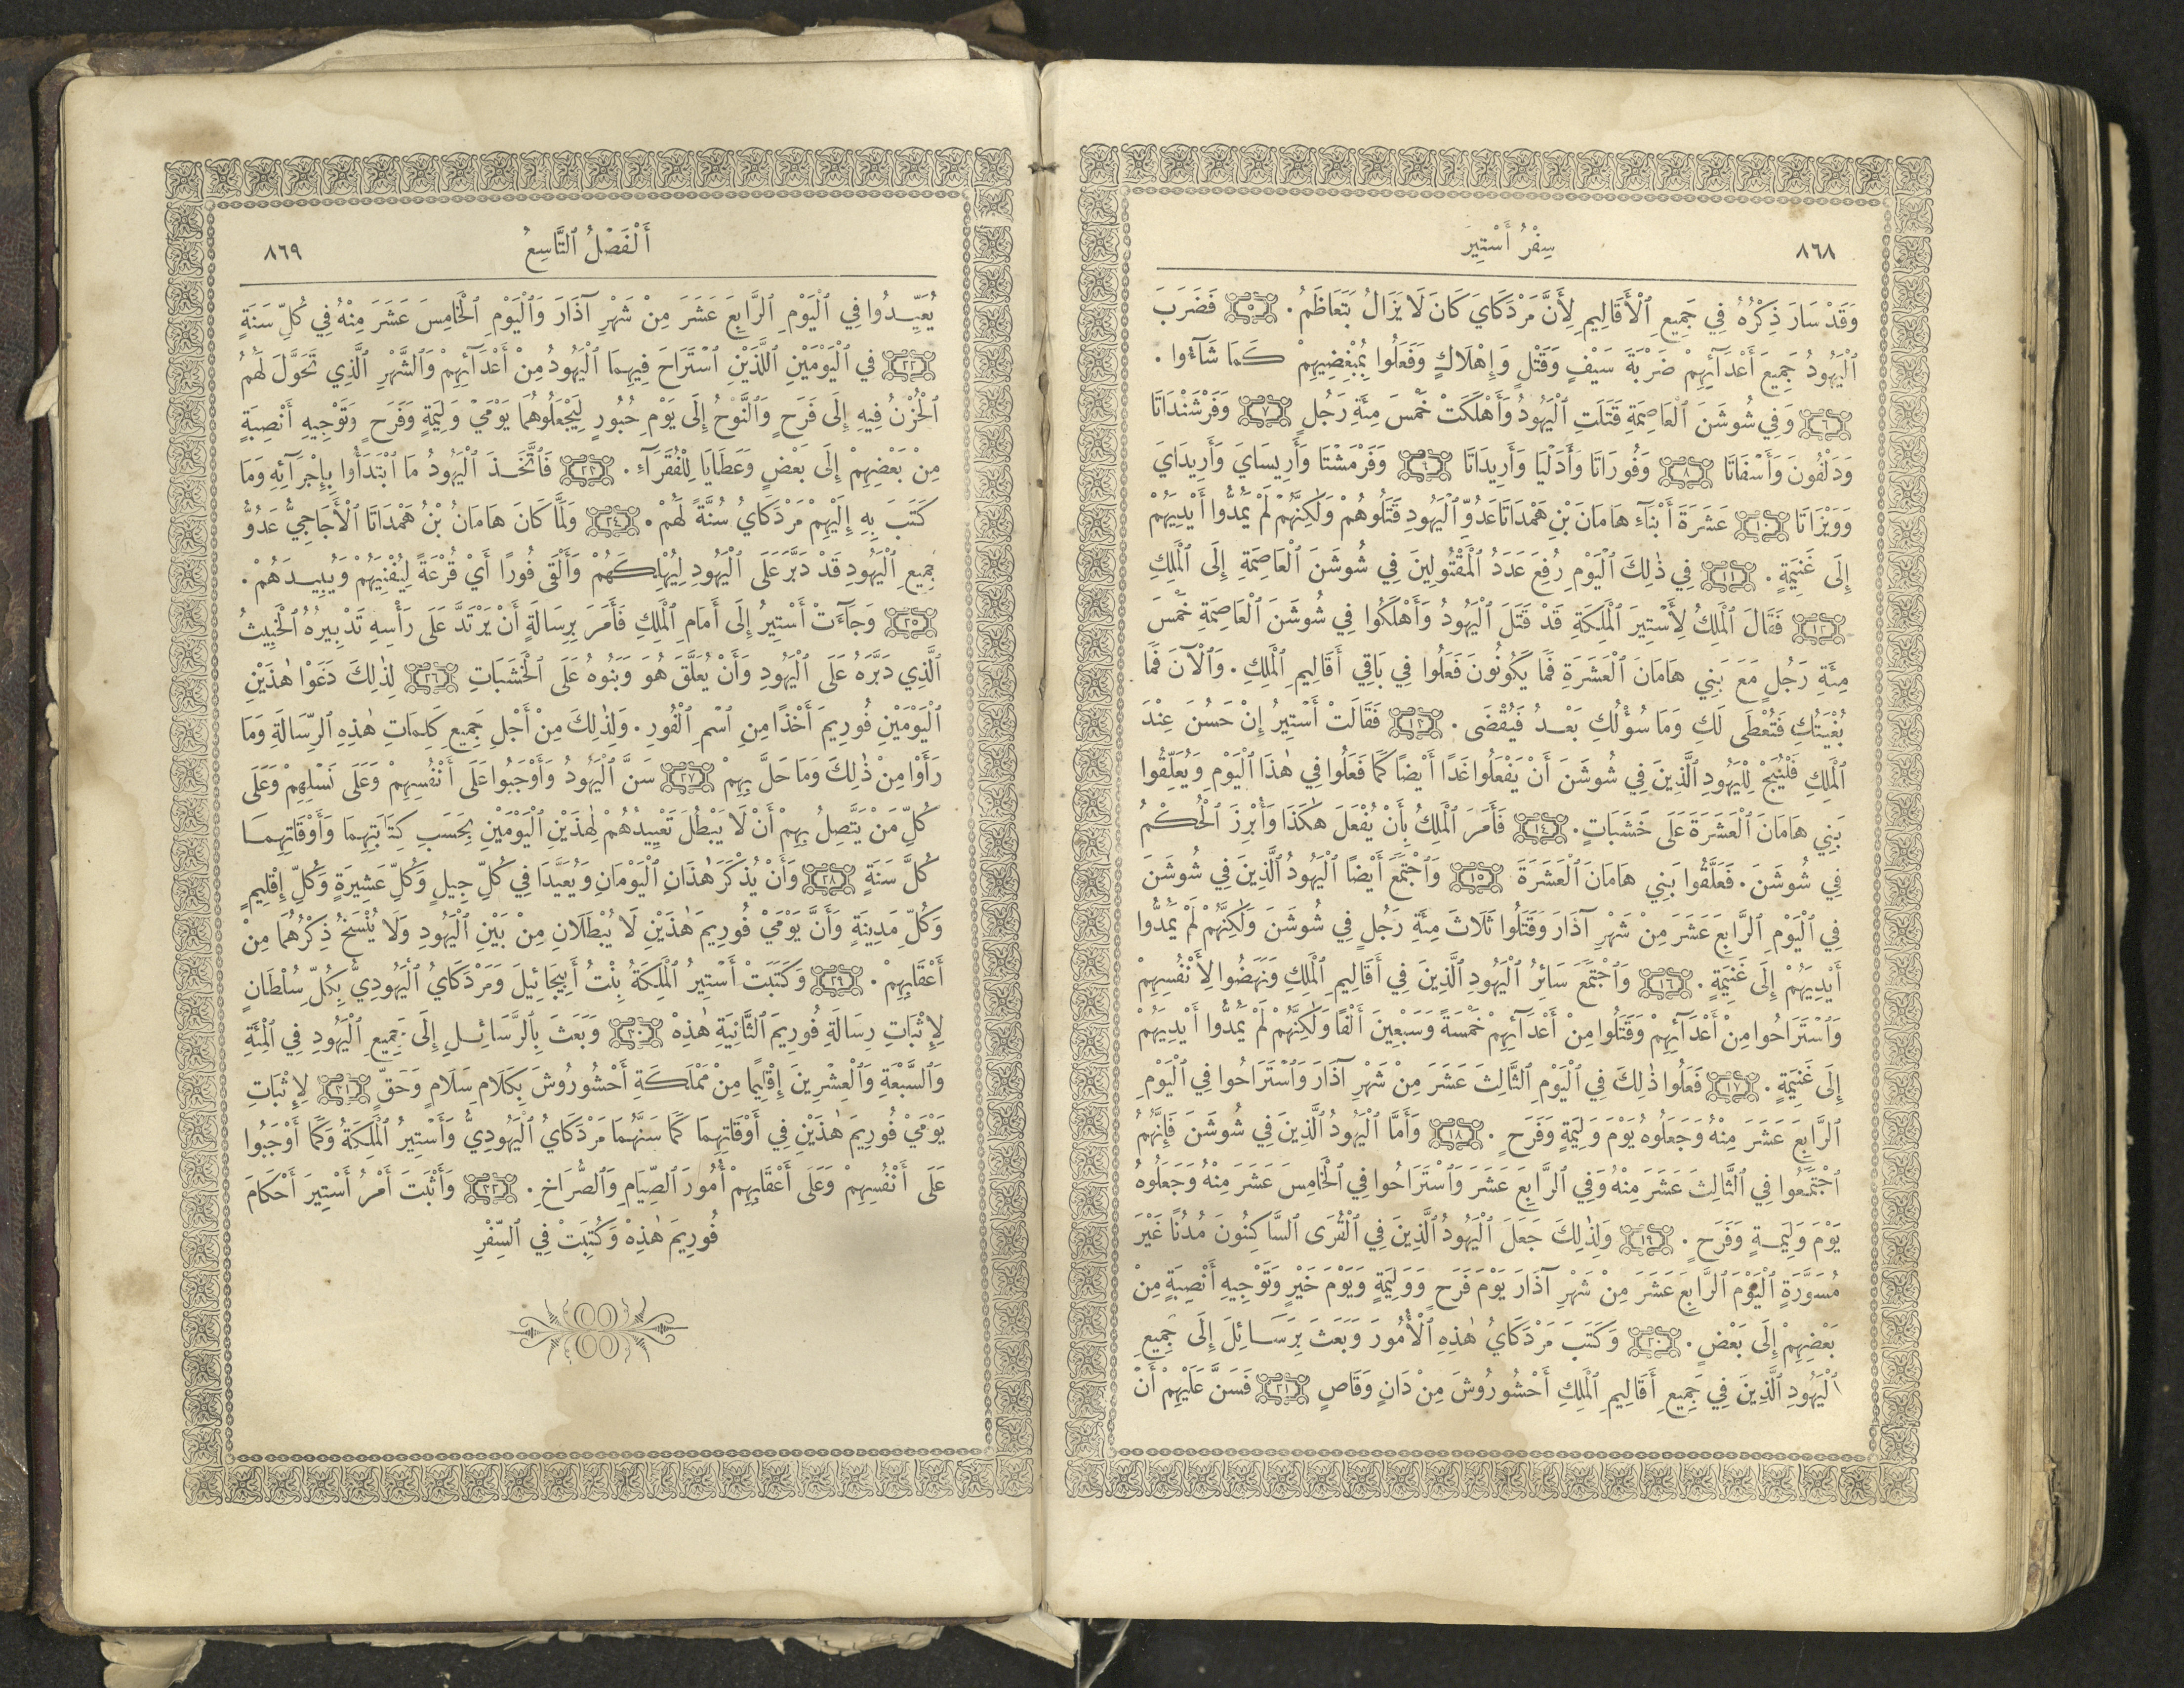 ٨٦٨
سِفْرُ أَسْتِيرَ
وَقَدْ سَارَ ذِكْرُهُ فِي جَمِيعِ ٱلْأَقَالِيمِ لِأَنَّ مَرْدَكَايَ كَانَ لَا يَزَالُ يَتَعَاظَمُ . ٥ فَضَرَبَ
ٱلْيَهُودُ جَمِيعَ أَعْدَآئِهِمْ ضَرْبَةَ سَيْفٍ وَقَتْلٍ وَإِهْلَاكٍ وَفَعَلُوا بِمُبْغِضِيهِمْ كَمَا شَآءُوا .
٦ وَفِي شُوشَنَ ٱلْعَاصِمَةِ قَتَلَتِ ٱلْيَهُودُ وَأَهْلَكَتْ خَمْسَ مِئَةِ رَجُلٍ ٧ وَفَرْشَنْدَاثَا
وَدَلْفُونَ وَأَسْفَاتَا ٨ وَفُورَاتَا وَأَدَلْيَا وَأَرِيدَاتَا ٩ وَفَرْمَشْتَا وَأَرِيسَايَ وَأَرِيدَايَ
وَوَيْزَاتَا ١٠ عَشَرَةَ أَبْنَآءِ هَامَانَ بْنِ هَمْدَاتَا عَدُوِّ ٱلْيَهُودِ قَتَلُوهُمْ وَلٰكِنَّهُمْ لَمْ يَمُدُّوا أَيْدِيَهُمْ
إِلَى غَنِيمَةٍ . ١١ فِي ذٰلِكَ ٱلْيَوْمِ رُفِعَ عَدَدُ ٱلْمَقْتُولِينَ فِي شُوشَنَ ٱلْعَاصِمَةِ إِلَى ٱلْمَلِكِ
١٢ فَقَالَ ٱلْمَلِكُ لِأَسْتِيرَ ٱلْمَلِكَةِ قَدْ قَتَلَ ٱلْيَهُودُ وَأَهْلَكُوا فِي شُوشَنَ ٱلْعَاصِمَةِ خَمْسَ
مِئَةِ رَجُلٍ مَعَ بَنِي هَامَانَ ٱلْعَشَرَةِ فَمَا يَكُونُونَ فَعَلُوا فِي بَاقِي أَقَالِيمِ ٱلْمَلِكِ . وَٱلْآنَ فَمَا
بُغْيَتُكِ فَتُعْطَى لَكِ وَمَا سُؤْلُكِ بَعْدُ فَيُقْضَى . ١٣ فَقَالَتْ أَسْتِيرُ إِنْ حَسُنَ عِنْدَ
ٱلْمَلِكِ فَلْيُبَحْ لِلْيَهُودِ ٱلَّذِينَ فِي شُوشَنَ أَنْ يَفْعَلُوا غَدًا أَيْضًا كَمَا فَعَلُوا فِي هٰذَا ٱلْيَوْمِ وَيُعَلِّقُوا
بَنِي هَامَانَ ٱلْعَشَرَةَ عَلَى خَشَبَاتٍ . ١٤ فَأَمَرَ ٱلْمَلِكُ بِأَنْ يُفْعَلَ هٰكَذَا وَأُبْرِزَ ٱلْحُكْمُ
فِي شُوشَنَ . فَعَلَّقُوا بَنِي هَامَانَ ٱلْعَشَرَةَ ١٥ وَٱجْتَمَعَ أَيْضًا ٱلْيَهُودُ ٱلَّذِينَ فِي شُوشَنَ
فِي ٱلْيَوْمِ ٱلرَّابِعَ عَشَرَ مِنْ شَهْرِ آذَارَ وَقَتَلُوا ثَلَاثَ مِئَةِ رَجُلٍ فِي شُوشَنَ وَلٰكِنَّهُمْ لَمْ يَمُدُّوا
أَيْدِيَهُمْ إِلَى غَنِيمَةٍ . ١٦ وَٱجْتَمَعَ سَائِرُ ٱلْيَهُودِ ٱلَّذِينَ فِي أَقَالِيمِ ٱلْمَلِكِ وَنَهَضُوا لِأَنْفُسِهِمْ
وَٱسْتَرَاحُوا مِنْ أَعْدَآئِهِمْ وَقَتَلُوا مِنْ أَعْدَآئِهِمْ خَمْسَةً وَسَبْعِينَ أَلْفًا وَلٰكِنَّهُمْ لَمْ يَمُدُّوا أَيْدِيَهُمْ
إِلَى غَنِيمَةٍ . ١٧ فَعَلُوا ذٰلِكَ فِي ٱلْيَوْمِ ٱلثَّالِثَ عَشَرَ مِنْ شَهْرِ آذَارَ وَٱسْتَرَاحُوا فِي ٱلْيَوْمِ
ٱلرَّابِعَ عَشَرَ مِنْهُ وَجَعَلُوهُ يَوْمَ وَلِيمَةٍ وَفَرَحٍ . ١٨ وَأَمَّا ٱلْيَهُودُ ٱلَّذِينَ فِي شُوشَنَ فَإِنَّهُمُ
ٱجْتَمَعُوا فِي ٱلثَّالِثَ عَشَرَ مِنْهُ وَفِي ٱلرَّابِعَ عَشَرَ وَٱسْتَرَاحُوا فِي ٱلْخَامِسَ عَشَرَ مِنْهُ وَجَعَلُوهُ
يَوْمَ وَلِيمَةٍ وَفَرَحٍ . ١٩ وَلِذٰلِكَ جَعَلَ ٱلْيَهُودُ ٱلَّذِينَ فِي ٱلْقُرَى ٱلسَّاكِنُونَ مُدُنًا غَيْرَ
مُسَوَّرَةٍ ٱلْيَوْمَ ٱلرَّابِعَ عَشَرَ مِنْ شَهْرِ آذَارَ يَوْمَ فَرَحٍ وَوَلِيمَةٍ وَيَوْمَ خَيْرٍ وَتَوْجِيهِ أَنْصِبَةٍ مِنْ
بَعْضِهِمْ إِلَى بَعْضٍ . ٢٠ وَكَتَبَ مَرْدَكَايُ هٰذِهِ ٱلْأُمُورَ وَبَعَثَ بِرَسَائِلَ إِلَى جَمِيعِ
ٱلْيَهُودِ ٱلَّذِينَ فِي جَمِيعِ أَقَالِيمِ ٱلْمَلِكِ أَحْشُورُوشَ مِنْ دَانٍ وَقَاصٍ ٢١ فَسَنَّ عَلَيْهِمْ أَنْ
أَلْفَصْلُ ٱلتَّاسِعُ
٨٦٩
يُعَيِّدُوا فِي ٱلْيَوْمِ ٱلرَّابِعَ عَشَرَ مِنْ شَهْرِ آذَارَ وَٱلْيَوْمِ ٱلْخَامِسَ عَشَرَ مِنْهُ فِي كُلِّ سَنَةٍ
٢٢ فِي ٱلْيَوْمَيْنِ ٱللَّذَيْنِ ٱسْتَرَاحَ فِيهِمَا ٱلْيَهُودُ مِنْ أَعْدَآئِهِمْ وَٱلشَّهْرِ ٱلَّذِي تَحَوَّلَ لَهُمُ
ٱلْحُزْنُ فِيهِ إِلَى فَرَحٍ وَٱلنَّوْحُ إِلَى يَوْمِ حُبُورٍ لِيَجْعَلُوهُمَا يَوْمَيْ وَلِيمَةٍ وَفَرَحٍ وَتَوْجِيهِ أَنْصِبَةٍ
مِنْ بَعْضِهِمْ إِلَى بَعْضٍ وَعَطَايَا لِلْفُقَرَآءِ . ٢٣ فَٱتَّخَذَ ٱلْيَهُودُ مَا ٱبْتَدَأُوا بِإِجْرَآئِهِ وَمَا
كَتَبَ بِهِ إِلَيْهِمْ مَرْدَكَايُ سُنَّةً لَهُمْ . ٢٤ وَلَمَّا كَانَ هَامَانُ بْنُ هَمْدَاتَا ٱلْأَجَاجِيُّ عَدُوُّ
جَمِيعِ ٱلْيَهُودِ قَدْ دَبَّرَ عَلَى ٱلْيَهُودِ لِيُهْلِكَهُمْ وَأَلْقَى فُورًا أَيْ قُرْعَةً لِيُفْنِيَهُمْ وَيُبِيدَهُمْ .
٢٥ وَجَآءَتْ أَسْتِيرُ إِلَى أَمَامِ ٱلْمَلِكِ فَأَمَرَ بِرِسَالَةٍ أَنْ يَرْتَدَّ عَلَى رَأْسِهِ تَدْبِيرُهُ ٱلْخَبِيثُ
ٱلَّذِي دَبَّرَهُ عَلَى ٱلْيَهُودِ وَأَنْ يُعَلَّقَ هُوَ وَبَنُوهُ عَلَى ٱلْخَشَبَاتِ ٢٦ لِذٰلِكَ دَعَوْا هٰذَيْنِ
ٱلْيَوْمَيْنِ فُورِيمَ أَخْذًا مِنِ ٱسْمِ ٱلْفُورِ . وَلِذٰلِكَ مِنْ أَجْلِ جَمِيعِ كَلِمَاتِ هٰذِهِ ٱلرِّسَالَةِ وَمَا
رَأَوْا مِنْ ذٰلِكَ وَمَا حَلَّ بِهِمْ ٢٧ سَنَّ ٱلْيَهُودُ وَأَوْجَبُوا عَلَى أَنْفُسِهِمْ وَعَلَى نَسْلِهِمْ وَعَلَى
كُلِّ مَنْ يَتَّصِلُ بِهِمْ أَنْ لَا يَبْطُلَ تَعْيِيدُهُمْ لِهٰذَيْنِ ٱلْيَوْمَيْنِ بِحَسَبِ كِتَابَتِهِمَا وَأَوْقَاتِهِمَا
كُلَّ سَنَةٍ ٢٨ وَأَنْ يُذْكَرَ هٰذَانِ ٱلْيَوْمَانِ وَيُعَيَّدَا فِي كُلِّ جِيلٍ وَكُلِّ عَشِيرَةٍ وَكُلِّ إِقْلِيمٍ
وَكُلِّ مَدِينَةٍ وَأَنَّ يَوْمَيْ فُورِيمَ هٰذَيْنِ لَا يُبْطَلَانِ مِنْ بَيْنِ ٱلْيَهُودِ وَلَا يُنْسَخُ ذِكْرُهُمَا مِنْ
أَعْقَابِهِمْ . ٢٩ وَكَتَبَتْ أَسْتِيرُ ٱلْمَلِكَةُ بِنْتُ أَبِيحَائِيلَ وَمَرْدَكَايُ ٱلْيَهُودِيُّ بِكُلِّ سُلْطَانٍ
لِإِثْبَاتِ رِسَالَةِ فُورِيمَ ٱلثَّانِيَةِ هٰذِهْ ٣٠ وَبَعَثَ بِٱلرَّسَائِلِ إِلَى جَمِيعِ ٱلْيَهُودِ فِي ٱلْمِئَةِ
وَٱلسَّبْعَةِ وَٱلْعِشْرِينَ إِقْلِيمًا مِنْ مَمْلَكَةِ أَحْشُورُوشَ بِكَلَامِ سَلَامٍ وَحَقٍّ ٣١ لِإِثْبَاتِ
يَوْمَيْ فُورِيمَ هٰذَيْنِ فِي أَوْقَاتِهِمَا كَمَا سَنَّهُمَا مَرْدَكَايُ ٱلْيَهُودِيُّ وَأَسْتِيرُ ٱلْمَلِكَةُ وَكَمَا أَوْجَبُوا
عَلَى أَنْفُسِهِمْ وَعَلَى أَعْقَابِهِمْ أُمُورَ ٱلصِّيَامِ وَٱلصُّرَاخِ . ٣٢ وَأَثْبَتَ أَمْرُ أَسْتِيرَ أَحْكَامَ
فُورِيمَ هٰذِهْ وَكُتِبَتْ فِي ٱلسِّفْرِ